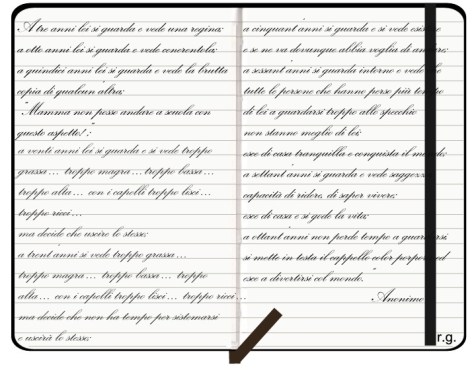 A tre anni lei si guarda e vede una regina;
a otto anni lei si guarda e vede cenerentola;
a quindici anni lei si guarda e vede la brutta
copia di qualcun altra;
"Mamma non posso andare a scuola con
questo aspetto!";
a venti anni lei si guarda e si vede troppo
grassa... troppo magra... troppo bassa...
troppo alta... con i capelli troppo lisci...
troppo ricci...
ma decide che uscire lo stesso;
a trent anni si vede troppo grassa...
troppo magra... troppo bassa... troppo
alta... con i capelli troppo lisci... troppo ricci...
ma decide che non ha tempo per sistemarsi
e uscirà lo stesso;
a cinquant anni si guarda e si vede
e se ne va dovunque abbia voglia di
a sessant anni si guarda intorno e vede
tutte le persone che hanno perso più
di lei a guardarsi troppo allo specchio
non stanno meglio di lei;
esce di casa tranquilla e conquista il
a settant anni si guarda e vede
capacità di ridere, di saper vivere;
esce di casa e si gode la vita;
a ottant anni non perde tempo a
si mette in testa il cappello color
esce a divertirsi col mondo.
Anonimo
r.g.